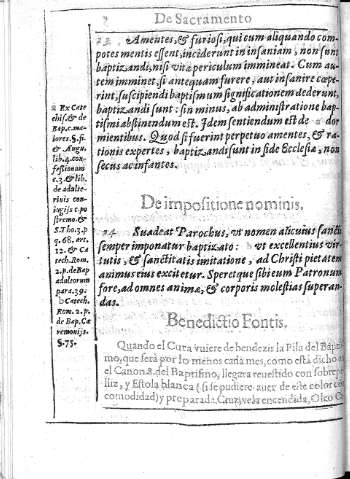 De Sacramento
Amentes, & furiosi, qui cum aliquando com-
potes mentis essent, inciderunt in insaniam, non sunt
baptizandi, nisi vitæ periculum immineat. Cum au-
tem imminet, si antequam furere, aut insanire cœpe-
rint, suscipiendi baptismum significationem dederunt,
baptizandi sunt: sin minus, ab administratione bap-
tismi abstinendum est. Idem sentiendum est de dor
mientibus. Quod si fuerint perpetuo amentes, & ra-
tionis expertes, baptizandi sunt in fide Ecclesiæ, non
secus ac infantes.
a Ex Cate
chis. & de
Bap. c. ma-
iores. §. fi-
& Augu.
lib. 4. con-
fessionum
c. 3. & lib.
de adulte-
rinis con-
iugijs c. po
stremo. &
S. Tho. 3. p
q. 68. art.
12. & Ca
tech. Rom.
2. p. de Bap
adultorum
para. 39.
b Catech.
Rom. 2. p.
de Bap. Cæ
remonijs.
§. 75.
De impositione nominis.
24 Suadeat Parochus, vt nomen alicuius sancti
semper imponatur baptizato: b vt excellentius vir-
tutis, & sanctitatis imitatione, ad Christi pietatem
animus eius excitetur. Speretque sibi eum Patronum
fore, ad omnes animæ, & corporis molestias superan-
das.
Benedictio Fontis.
Quando el Cura vuiere de bendezir la Pila del Baptis
mo, que será por lo menos cada mes, como está dicho en
el Canon 8. del Baptismo, llegara reuestido con sobrepe
lliz, y Estola blanca (si se pudiere auer de este color con
comodidad) y preparada Cruz, vela encendida, Oleo Ca